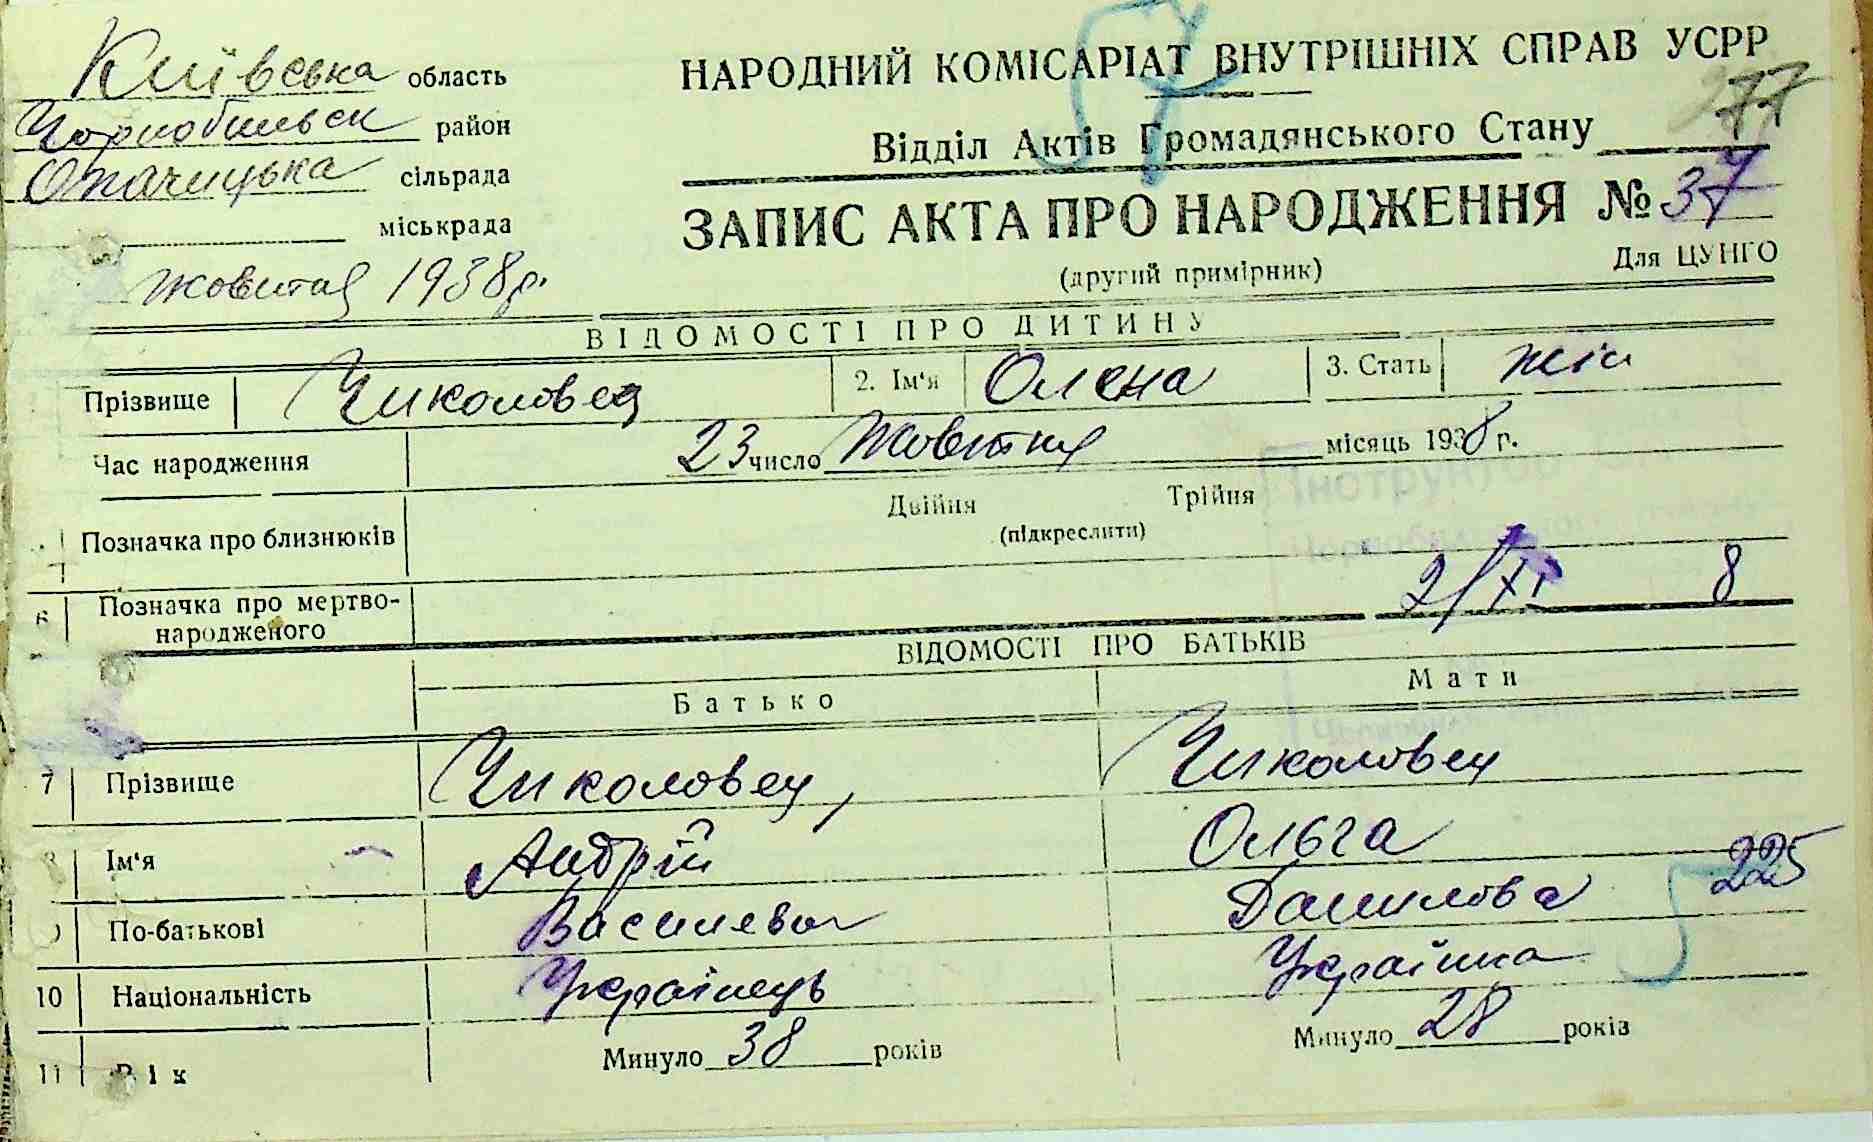 Київська область
Чорнобильськ район
Опачицька сільрада
міськрада
жовтня 1938 р.
НАРОДНИЙ КОМІСАРІАТ ВНУТРІШНІХ СПРАВ УСРР
277
Відділ Актів Громадянського Стану
ЗАПИС АКТА ПРО НАРОДЖЕННЯ № 37
(другий примірник) Для ЦУНГО
ВІДОМОСТІ ПРО ДИТИНУ
Прізвище Чиколовец 2. Ім'я Олена 3. Стать жін
Час народження 23 число Жовтня місяць 1938 р.
Позначка про близнюків Двійня Трійня
(підкреслити)
6 Позначка про мертво-
народженого
2/XI 8
ВІДОМОСТІ ПРО БАТЬКІВ
Батько Мати
7 Прізвище Чиколовец, Чиколовец
8 Ім'я Андрій Ольга
225
9 По-батькові Василевич Данилова
10 Національність Українець Українка
11 Вік Минуло 38 років Минуло 28 років